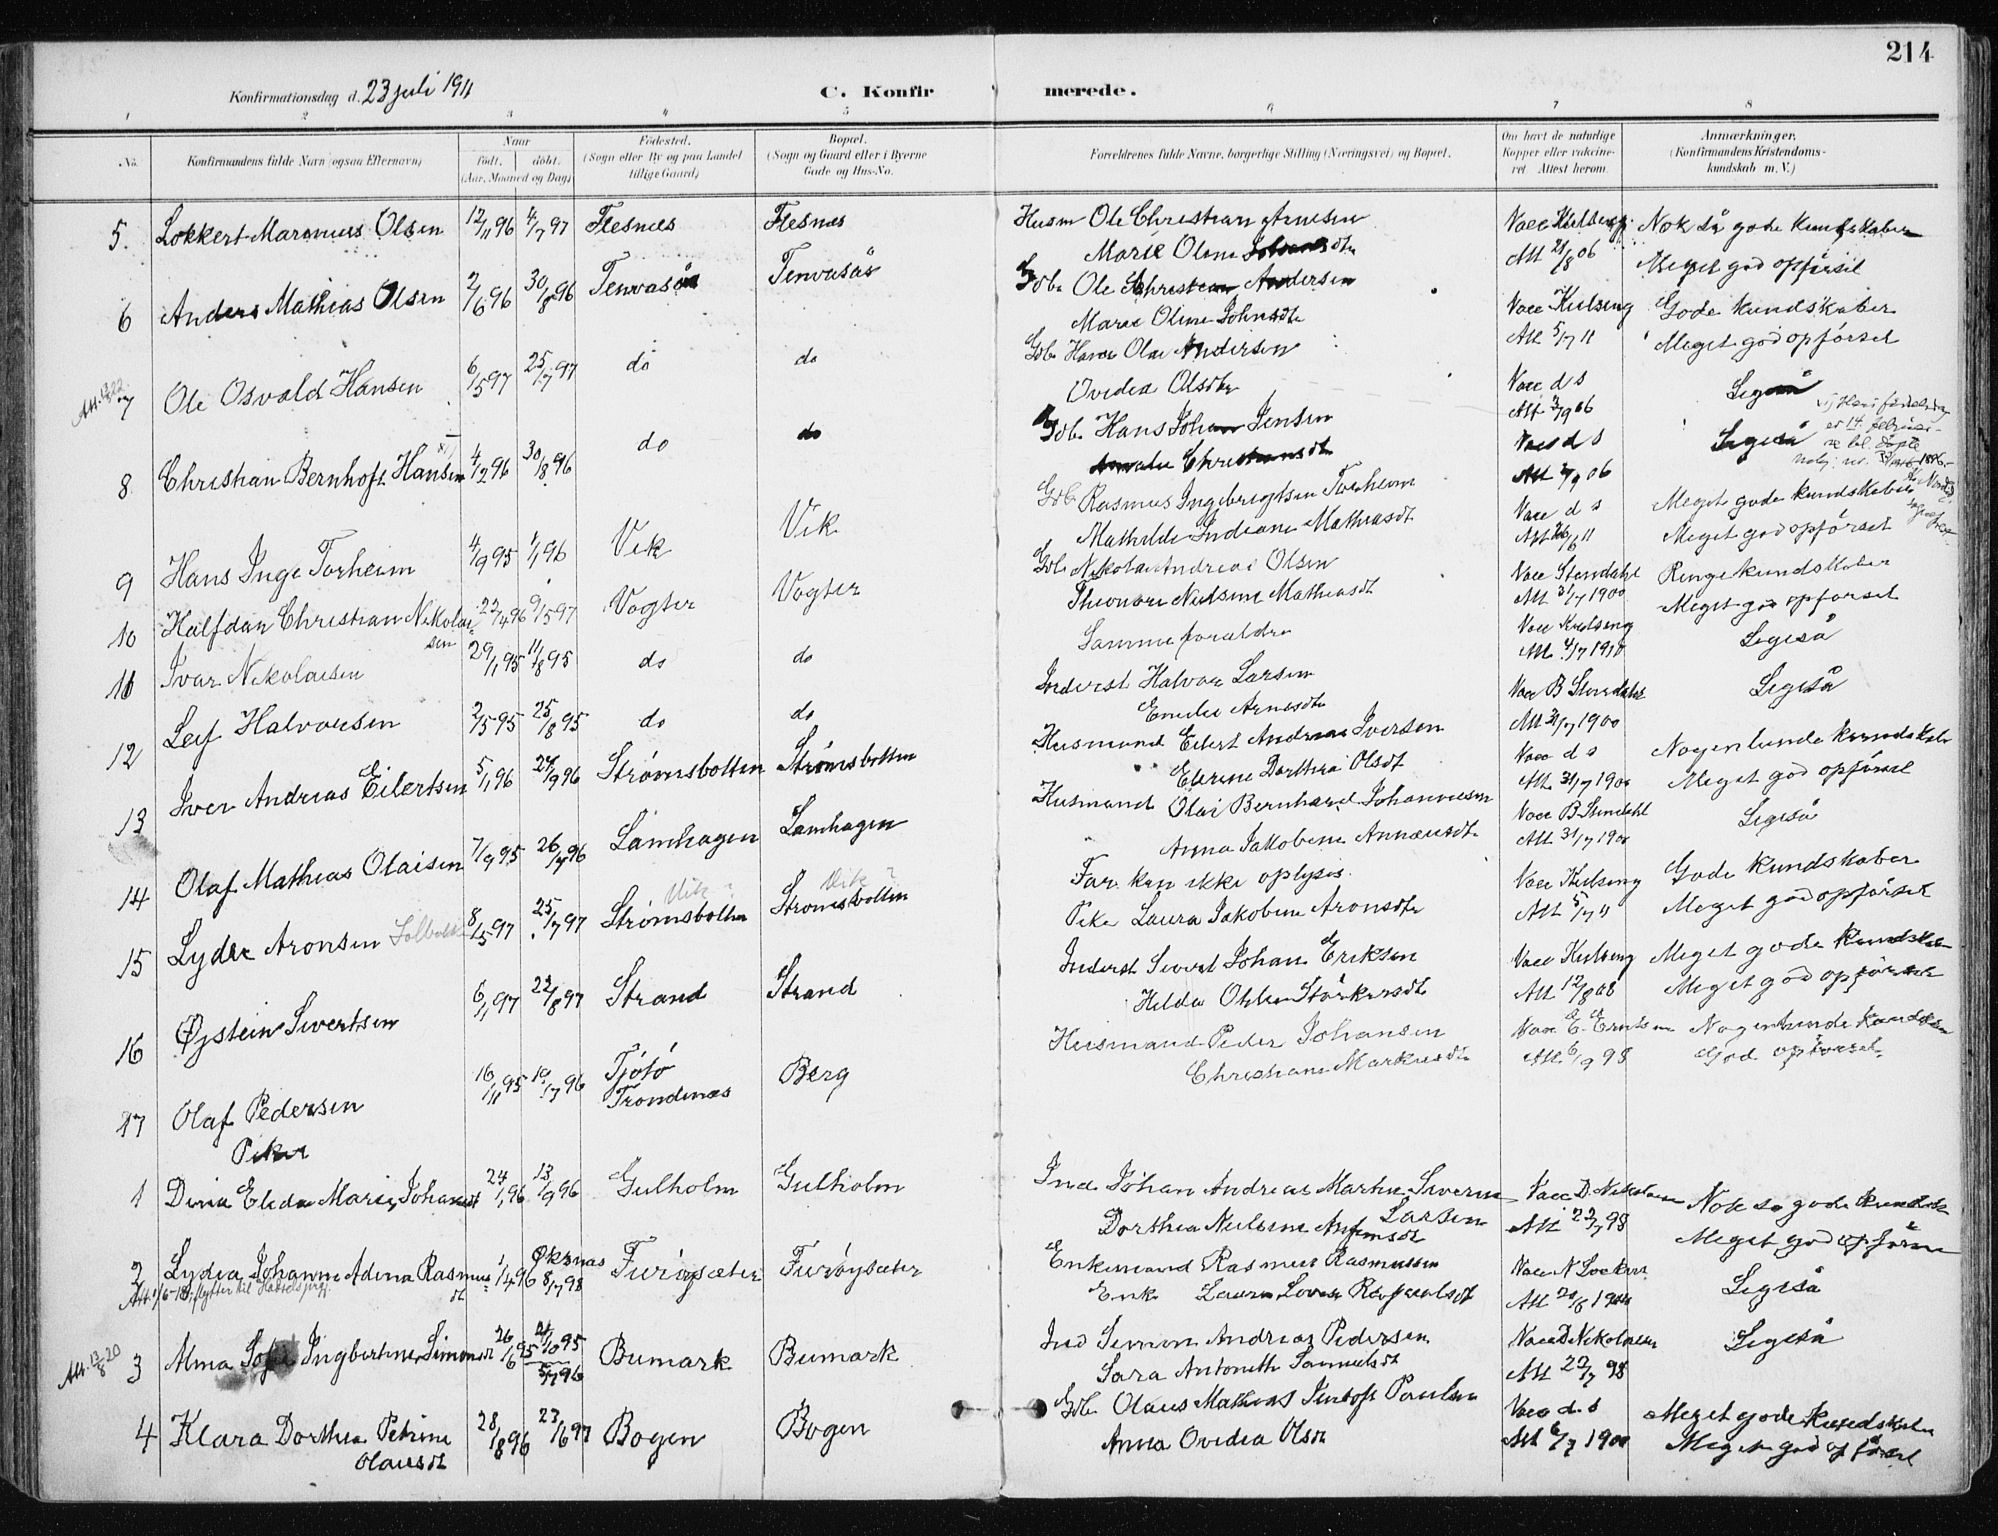 214
Konfirmationsdag d. 23 juli 1911 C. Konfirmerede.
1 2 3 4 5 6 7 8
No. Konfirmandens fulde Navn (ogsaa Efternavn) Naar født. døbt. (Aar, Maaned og Dag) Fødested. (Sogn eller By og paa Landet tillige Gaard) Bopæl. (Sogn og Gaard eller i Byerne Gade og Hus-No. Forældrenes fulde Navne, borgerlige Stilling (Næringsvei) og Bopæl. Om havt de naturlige Kopper eller vakcineret. Attest herom. Anmærkninger. (Konfirmandens Kristendomskundskab m. V.)
5. Lokkert Marenius Olsen 12/11 96 4/7 97 Flesnes Flesnes Husm Ole Christian Arnesen Vacc Nok så gode kundskaber
Marie Oline Att 21/8 06 Meget god opførsel
6 Anders Mathias Olsen 2/6 96 30/8 96 Tenvasår Tenvasår Gdb. Ole Christian Andersen Vacc Kulseng Gode kundskaber
Marie Oline Johnsdtr Att 5/7 11 Meget god opførsel
7 Ole Osvald Hansen 6/5 97 25/7 97 do do Gdb. Hans Olai Andersen Vacc d s Ligeså
Ovidia Olsdtr Att 3/9 06
8 Christian Bernhoft Hansen 4/2 96 30/8 96 do do Gdb. Hans Johan Jensen Vacc d s Ligeså
Amalie Christiansdtr Att 3/9 06
9 Hans Inge Torheim 4/9 95 1/1 96 Vik Vik Gdb Rasmus Ingebrigtsen Torheim Vacc d s Meget gode kundskaber
Mathilde Indiane Mathiasdt Att 26/6 11 Meget god opførsel
10 Halfdan Christian Nikolaisen 22/4 96 9/5 97 Vogter Vogter Gdb. Nikolai Andreas Olsen Vacc Stendahl Ringe kundskaber
Theonore Nielsine Mathiasdt Att 31/7 1900 Meget god opførsel
11 Ivar Nikolaisen 29/1 95 11/8 95 do do Samme forældre Vacc Kulseng Att. 4/7 1910 Ligeså
12 Leif Halvorsen 2/5 95 25/8 95 do do Inderst Halvor Larsen Vacc B Stendahl Ligeså
Emelie Arnesdtr Att 31/7 1900
13 Iver Andreas Eilertsen 5/1 96 27/9 96 Strømsbotten Strømsbotten Husmand Eilert Andreas Iversen Vacc d s Nogenlunde kundskab
Elerine Dorthea Olsdt Att. 31/7 1900 Meget god opførsel
14 Olaf Mathias Olaisen 7/9 95 26/7 96 Lamhagen Lamhagen Husmand Olai Bernhard Johannesen Vacc B Stendahl Ligeså
Anna Jakobine Annæusdt. Att 31/7 1900
15 Lyder Aronsen 8/5 97 25/7 97 Vik? Strømsbotten Vik? Strømsbotten Far kan ikke oplyses. Vacc Kulseng Gode kundskaber
Pike Laura Jakobine Aronsdtr Att 5/7 11 Meget god opførsel
16 Øystein Sivertsen 6/1 97 22/8 97 Strand Strand Inderst Sivert Johan Eriksen Vacc Kulseng Meget gode kundskab
Hilda Othilie Størkersdt Att 12/8 08 Meget god opførsel
17 Olaf Pedersen 16/11 95 10/7 96 Tjøtø Trondenæs Berg Husmand Peder Johansen Vacc E. Erntsen Nogenlunde kundskab
Christiane Markusdtr Att. 6/9 98 God opførsel.
Piker
1 Dina Elida Marie Johansdt 24/1 96 13/9 96 Gulholm Gulholm Ind Johan Andreas Martin Severin Larsen Vacc D. Nikolaisen Nok så gode kundskab
Dorthea Nielsine Att 22/7 98 Meget god opførsel
2 Lydia Johanne Adina Rasmusdt 1/4 96 Øksnæs 8/7 98 Furøysæter Furøysæter Enkemand Rasmus Rasmussen Vacc N Ligeså
Enke Laura Lovise Att 20/8 1904
3 Alma Sofie Ingbertine Simonsdt 26/6 95 21/10 95 5/7 96 Bumark Bumark Ind Simon Andreas Pedersen Vacc D Nikolaisen Ligeså
Att. 13/8 20 Sara Antonette Samuelsdt Att 22/7 98
4 Klara Dorthea Petrine Olausdt 28/8 96 27/6 97 Bogen Bogen Gdb. Olaus Mathias Jentoft Paulsen Vacc d. s Meget gode kundskaber
Anna Ovidia Olsdt Att 6/7 1900 Meget god opførsel